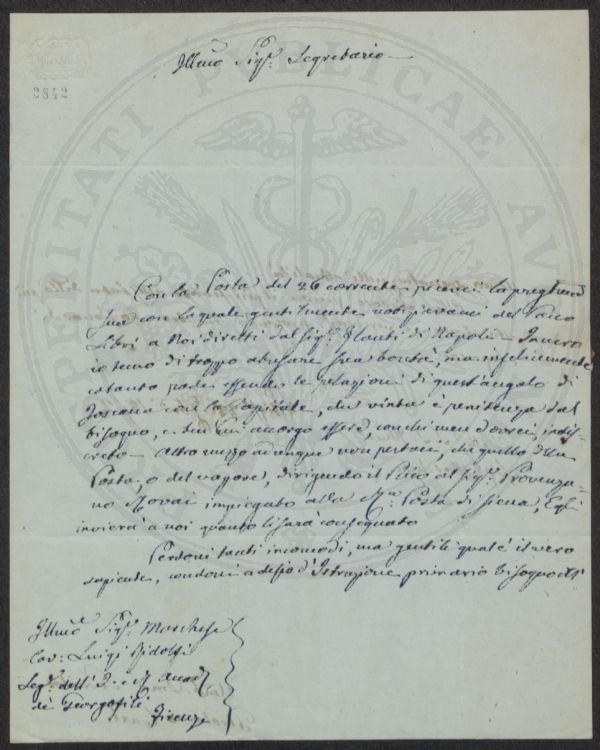 2842
Illmo Sigr. Segretario
Con la Posta del 26 corrente ricevei la pregiatis
sua con la quale gentilmente notiziavami del Pacco
Libri a Noi diretti dal Sigr. di Napoli – In vero
io temo di troppo abusare sua bontà, ma infelicemente
cotanto rade essendo le relazioni di quest'angolo di
Toscana con la Capitale, che vinta è penitenza dal
bisogno, e ben mi accorgo essere, con chi men dovrei, indis
creto – Altro mezzo adunque non per noi, che quello della
Posta, o del vapore, dirigendo il Pacco al Sigr. Provenza
no impiegato alla Ra. Posta di Siena, Egli
invierà a noi quanto li sarà consegnato
Perdoni tanti incomodi, ma gentile qual'è il vero
sapiente, condoni a desio d'Istruzione primario bisogno di
Illmo Sigr. Marchese
Cav: Luigi Ridolfi
Segr. dell'I. e R. Accad.
dei Georgofili
Firenze
PUBLICAE